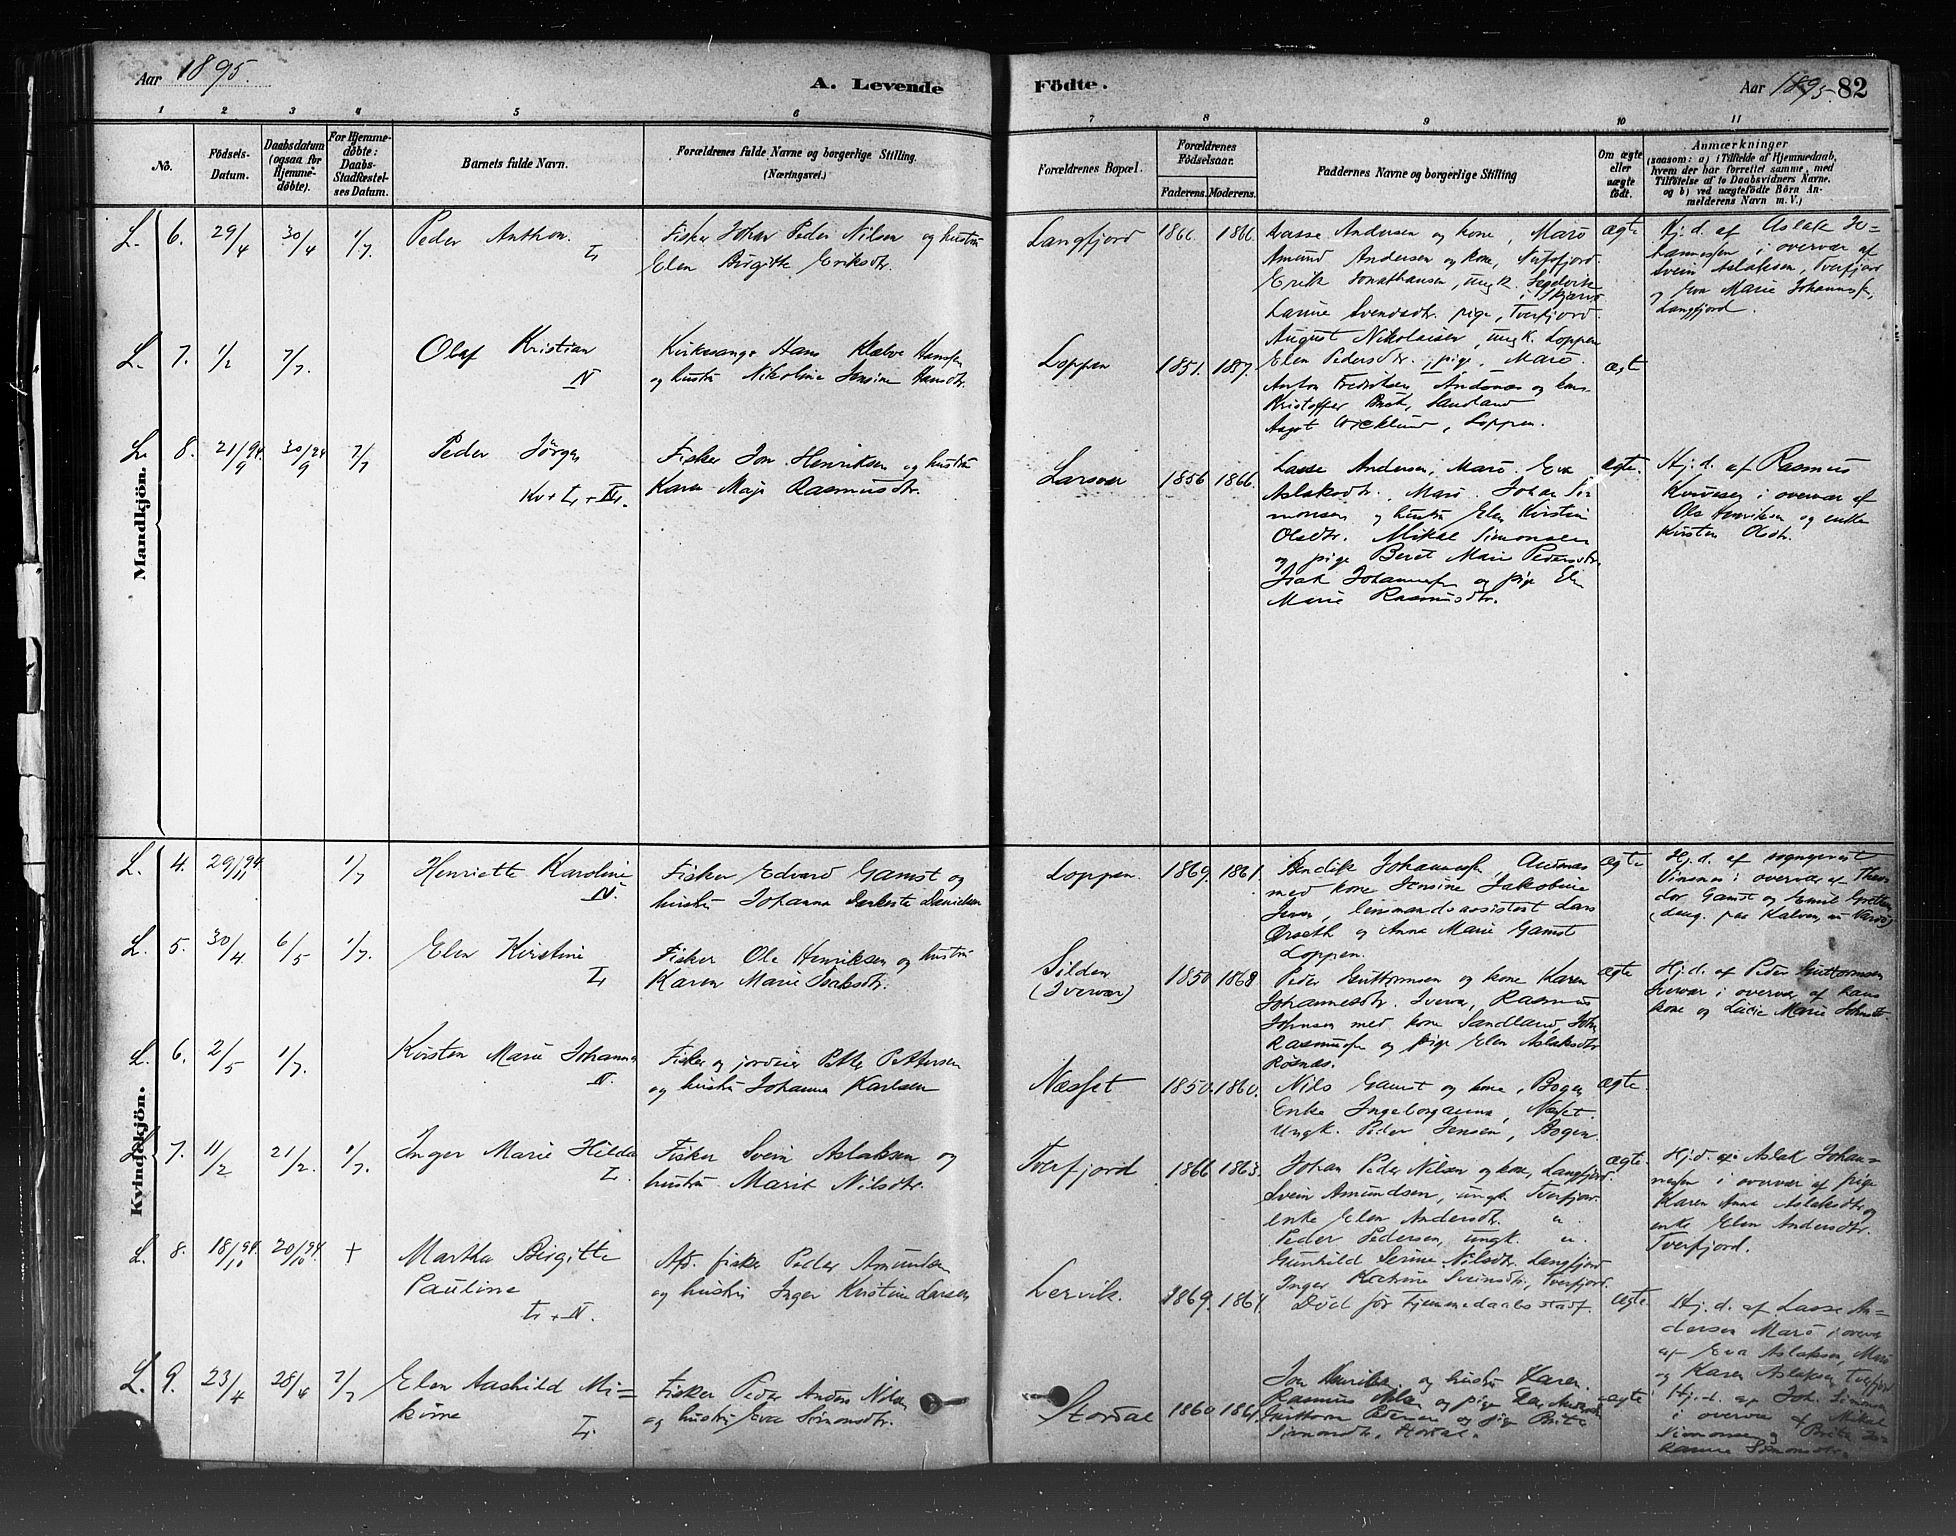 Aar 1895. A. Levende
Födte. Aar 1895. 82
1 2 3 4 5 6
7 8 9 10 11
No.
Födsels-
Datum.
Daabsdatum
(ogsaa for
Hjemme-
døbte).
For Hjemme-
døbte:
Daabs-
Stadfæstel-
ses Datum.
Barnets fulde Navn.
Forældrenes fulde Navne og borgerlige Stilling.
(Næringsvei.)
Forældrenes Bopæl.
Forældrenes
Födselsaar.
Faderens. Moderens.
Faddernes Navne og borgerlige Stilling
Om ægte
eller
uægte
födt.
Anmærkninger
(saasom: a) i Tilfælde af Hjemmedaab,
hvem der har forrettet samme, med
Tilföielse af to Daabsvidners Navne,
og b) ved uægtefödte Börn An-
melderens Navn m. V.)
Mandkjön.
L. 6. 29/4 30/4 1/7. Peder Anthon. L.
Fisker Johan Peder Nilsen og hustru
Elen Birgitte Eriksdtr.
Langfjord 1866. 1866.
Lasse Andersen og kone, Marö
Amund Andersen og kone,
Erik Jonathansen, ungk.
i Skjervö
Laurie Svendsdtr. pige, Tverfjord.
ægte
Hj. d. af Aslak Jo-
hannessen i overvær af
Svein Aslaksen, Tverfjord
og Eva Marie Johannesdtr,
Langfjord.
L. 7. 1/2 7/7. Olaf Kristian N
Kirkesanger Hans Hansen
og hustru Nikoline Jensine Hansdtr.
Loppen 1851. 1857.
August Nikolaisen, ungk. Loppen
Elen Pedersdtr. pige, Marö.
Anton Fredriksen, Andsnæs og kone
Kristoffer Buck, Sandland
Aagot Wicklund, Loppen.
ægt
L. 8. 21/9 94. 30/9 94 7/7 Peder Jörgen
Kv + L + N.
Fisker Jon Henriksen og hustru
Karen Maja Rasmusdtr.
Larsvær 1856 1866.
Lasse Andersen, Marö. Eva
Aslaksdtr. Marö. Johan Si-
monsen og hustru Elen Kirstin
Olsdtr. Mikal Simonsen
og pige Beret Marie Pedersdtr.
Isak Johannesen og pige Elen
Marie Rasmusdtr.
ægte.
Hj. d. af Rasmus
i overvær af
Ole Henriksen og enke
Kirsten Olsdtr.
Kvindekjön.
L. 4. 29/11 94. 1/7 Henriette Karoline
N.
Fisker Edvard Gamst og
hustru Johanna Danielsen
Loppen. 1869. 1861.
Bendik Johannesen, Andsnæs
med kone Jensine Jakobine
lensmandsassistent Lars
Ørseth og Anna Marie Gamst
Loppen.
ægte
Hj. d. af sogneprest
i overvær af Theo-
dor Gamst og Emil
L. 5. 30/4 6/5 1/7. Elen Kirstine
L
Fisker Ole Henriksen og hustru
Karen Marie Isaksdtr.
Silden
(Iverver)
1850 1868
Peder Guttormsen og kone Karen
Johannesdtr. Iverver, Rasmus
Johnsen med kone Sandland, John
Rasmusen og pige Elen Aslaksdtr
Rösnæs.
ægte
Hj. d. af Peder Guttormsen
Iverver i overvær af hans
kone og Lucie Marie
L. 6. 2/5 1/7. Kirsten Marie Johanna
N.
Fisker og jordeier Petter Pettersen
og hustru Johanna Karlsen
Næsset 1850. 1860.
Nils Gamst og kone, Bogen
Enke Ingeborganna, Næset.
Ungk. Peder Jensen, Bogen.
ægte
L. 7. 11/2 21/2. 1/7. Inger Marie Hilda
L.
Fisker Svein Aslaksen og
hustru Marit Nilsdtr.
Tverfjord 1866 1863.
Johan Peder Nilsen og kone, Langfjord.
Svein Amundsen, ungk. Tverfjor.
enke Elen Andersdtr. "
Peder Pedersen, ungk. "
Gunhild Serine Nilsdtr. Langfjord
Inger Katrine Sveinsdtr, Tverfjord.
ægte
Hj. d. af Aslak Johan-
nesen i overvær af pige
Karen Anna Aslaksdtr og
enke Elen Andersdtr.
Tverfjord.
L. 8. 18/10 94. 20/10 94. + Martha Birgitte
Pauline
L + N.
Afd. fisker Peder Amundsen
og hustru Inger Kirstine Larsen
Lervik. 1869. 1864
Död för hjemmedaabs stadf.
ægte
Hj. d. af Lasse An-
dersen Marö i overvær
af Eva Aslaksen, Marö
og Karen Aslaksen Tverfjord
L. 9. 23/4 28/4 7/7 Elen Aashild Mi-
körne
L.
Fisker Peder Anders Nilsen
og hustru Eva Simonsdtr.
Stordal 1860 1861.
Jon Henriksen og hustru Karen
Rasmus og pige Elen
Guttorm Pedersen og pige Brita
Simonsdtr. Stordal.
ægte
Hj. d. af Joh. Simonsen
i overvær af Mikal
Simonsen og Brita
Simonsdtr.